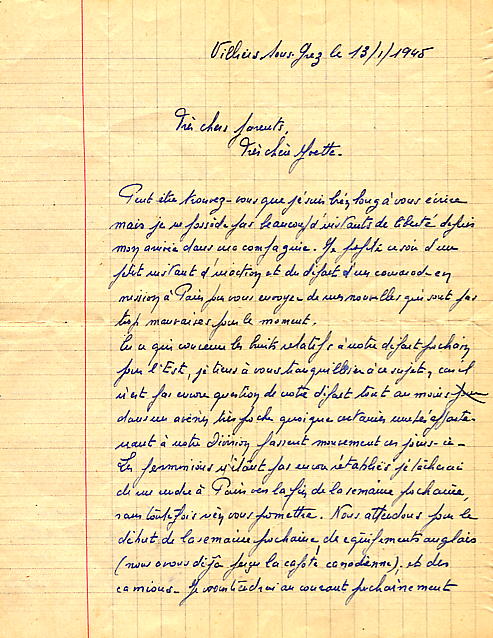 Villiers sous Grez le 13/1/1945
Très chers parents,
Très chère Yvette.
Peut être trouvez-vous que je suis bien long à vous écrire
mais je ne possède pas beaucoup d'instants de liberté depuis
mon arrivée dans ma compagnie. Je profite ce soir d'un
petit instant d'inaction et du départ d'un camarade en
mission à Paris pour vous envoyer de mes nouvelles qui sont pas
trop mauvaises pour le moment.
En ce qui concerne les bruits relatifs à notre départ prochain
pour l'Est, je tiens à vous tranquilliser à ce sujet, car il
n'est pas encore question de notre départ tout au moins
dans un avenir très proche quoique certaines unités apparte-
nant à notre division fassent mouvement ces jours-ci-
Les permissions n'étant pas encore rétablies je tâcherai
de me rendre à Paris vers la fin de la semaine prochaine,
sans toutefois rien vous promettre. Nous attendons pour le
début de la semaine prochaine des équipements anglais
(nous avons déjà perçu la capote canadienne), et des
camions- Je vous tiendrai au courant prochainement